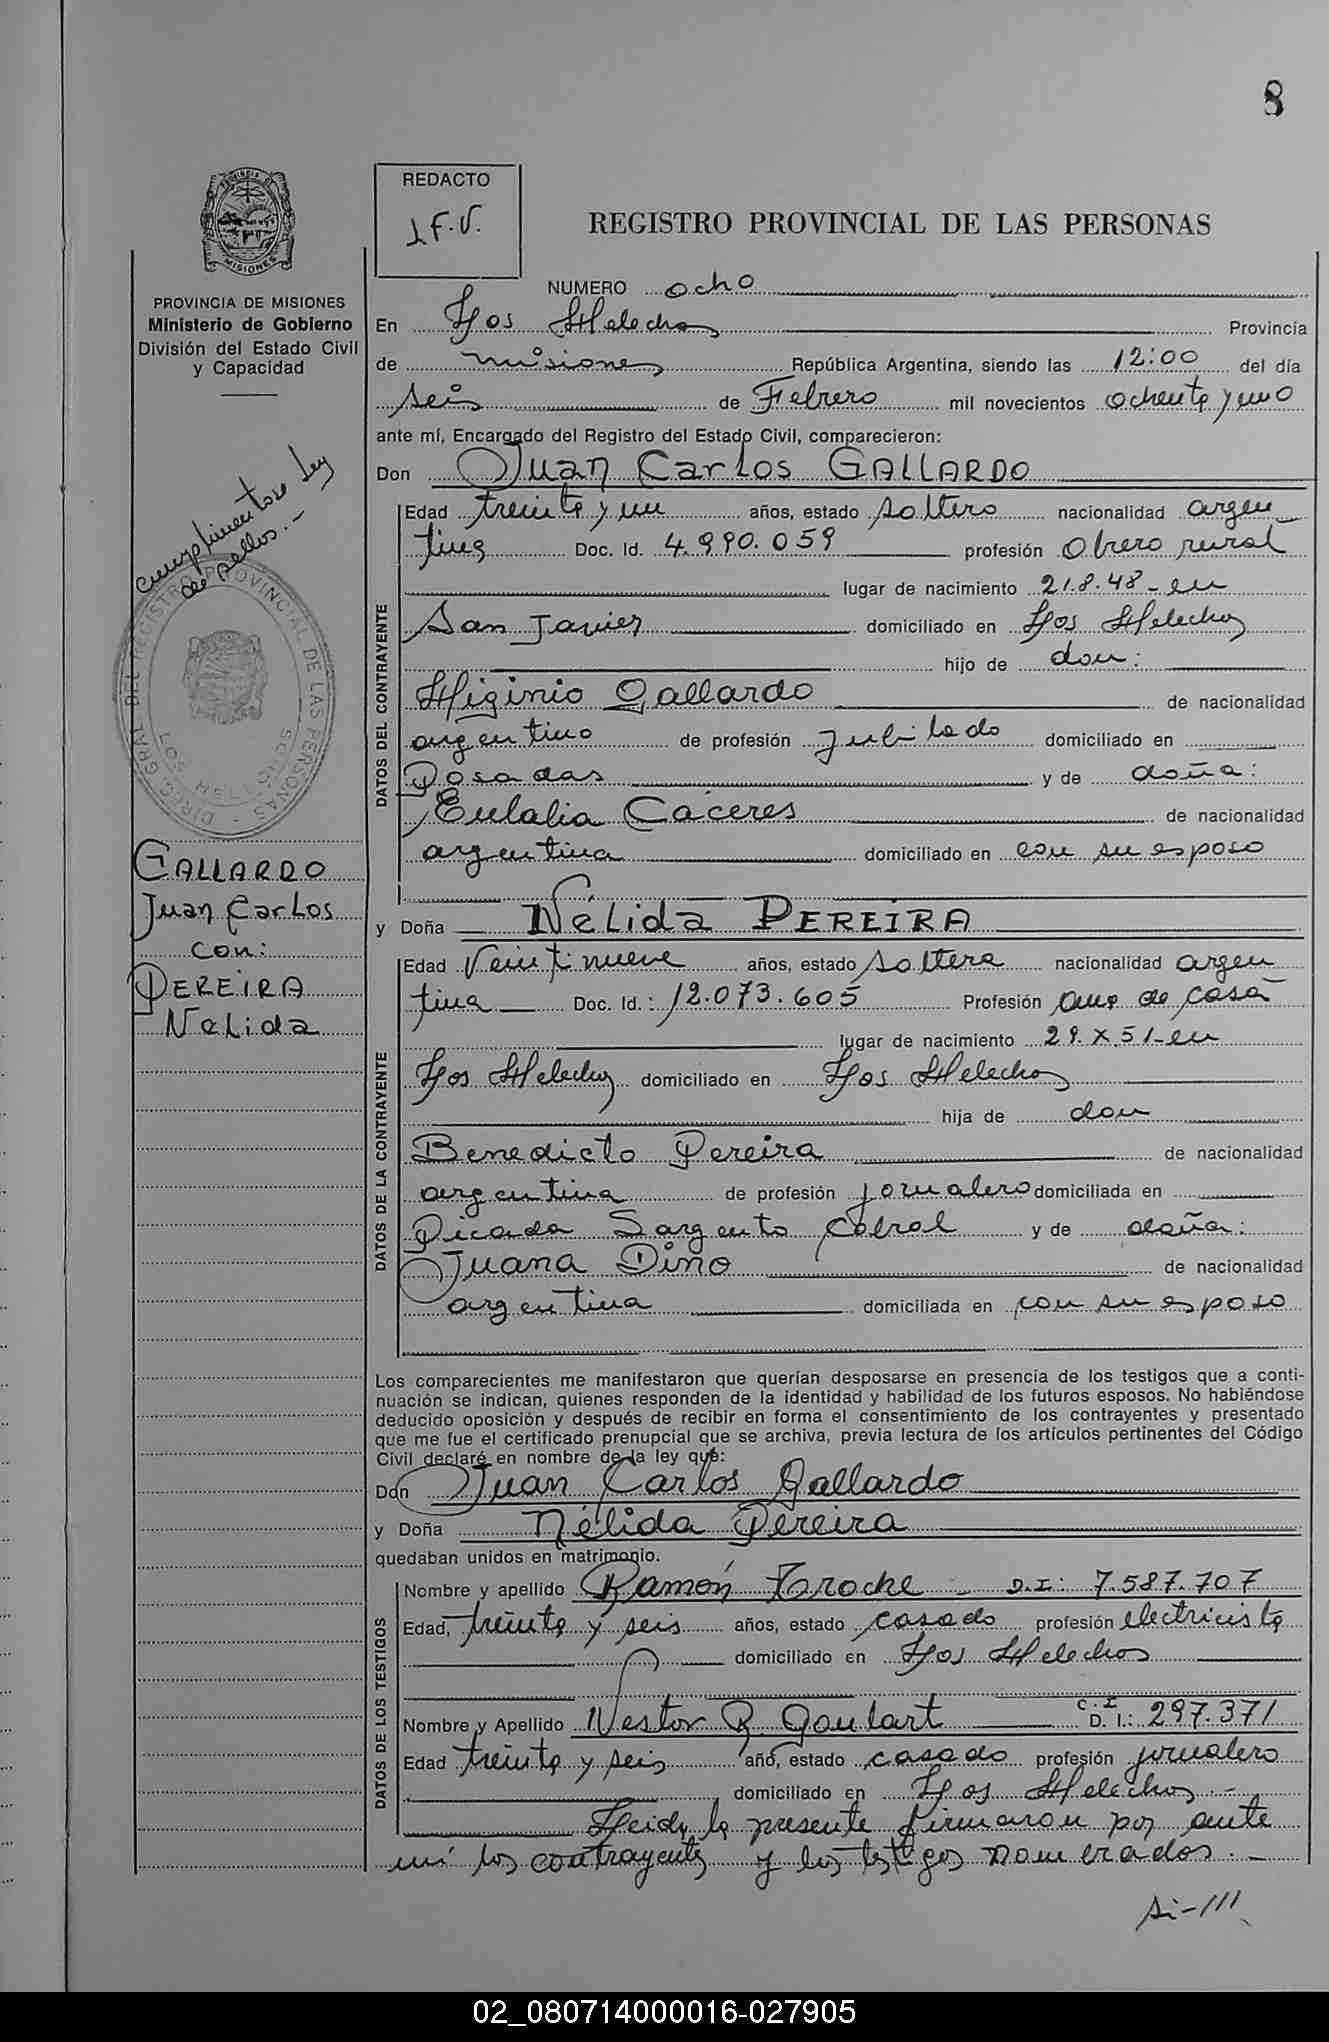 8
REDACTO
J.F.V.
REGISTRO PROVINCIAL DE LAS PERSONAS
MISIONES
PROVINCIA DE MISIONES
Ministerio de Gobierno
División del Estado Civil
y Capacidad
cumplimentose ley
de sellos.-
DIREC. GRAL. DEL REGISTRO PROVINCIAL DE LAS PERSONAS
GALLARDO
Juan Carlos
con:
PEREIRA
Nelida
NUMERO ocho
En Los Helechos Provincia
de misiones República Argentina, siendo las 12:00 del día
seis de Febrero mil novecientos ochenta y uno
ante mí, Encargado del Registro del Estado Civil, comparecieron:
Don Juan Carlos GALLARDO
DATOS DEL CONTRAYENTE
Edad treinta y un años, estado soltero nacionalidad argen
tina Doc. Id. 4.990.059 profesión Obrero rural
lugar de nacimiento 21.8.48 - en
San Javier domiciliado en Los Helechos
hijo de don:
Higinio Gallardo de nacionalidad
argentino de profesión jubilado domiciliado en
Posadas y de doña:
Eulalia Caceres de nacionalidad
argentina domiciliado en con su esposo
y Doña Nélida PEREIRA
DATOS DE LA CONTRAYENTE
Edad Veintinueve años, estado soltera nacionalidad argen
tina Doc. Id.: 12.073.605 Profesión ama de casa
lugar de nacimiento 29.X.51-en
Los Helechos domiciliado en Los Helechos
hija de don
Benedicto Pereira de nacionalidad
argentina de profesión jornalero domiciliada en
Picada Sargento Cabral y de doña:
Juana Dino de nacionalidad
argentina domiciliada en con su esposo
Los comparecientes me manifestaron que querían desposarse en presencia de los testigos que a conti-
nuación se indican, quienes responden de la identidad y habilidad de los futuros esposos. No habiéndose
deducido oposición y después de recibir en forma el consentimiento de los contrayentes y presentado
que me fue el certificado prenupcial que se archiva, previa lectura de los artículos pertinentes del Código
Civil declaré en nombre de la ley que:
Don Juan Carlos Gallardo
y Doña Nélida Pereira
quedaban unidos en matrimonio.
DATOS DE LOS TESTIGOS
Nombre y apellido Ramón Troche - D.I: 7.587.707
Edad, treinta y seis años, estado casado profesión electricista
domiciliado en Los Helechos
Nombre y Apellido Nestor R. Goulart C.I. D. I.: 297.371
Edad treinta y seis año, estado casado profesión jornalero
domiciliado en Los Helechos.-
Leida la presente firmaron por ante
mí los contrayentes y los testigos nombrados.-
02_080714000016-027905